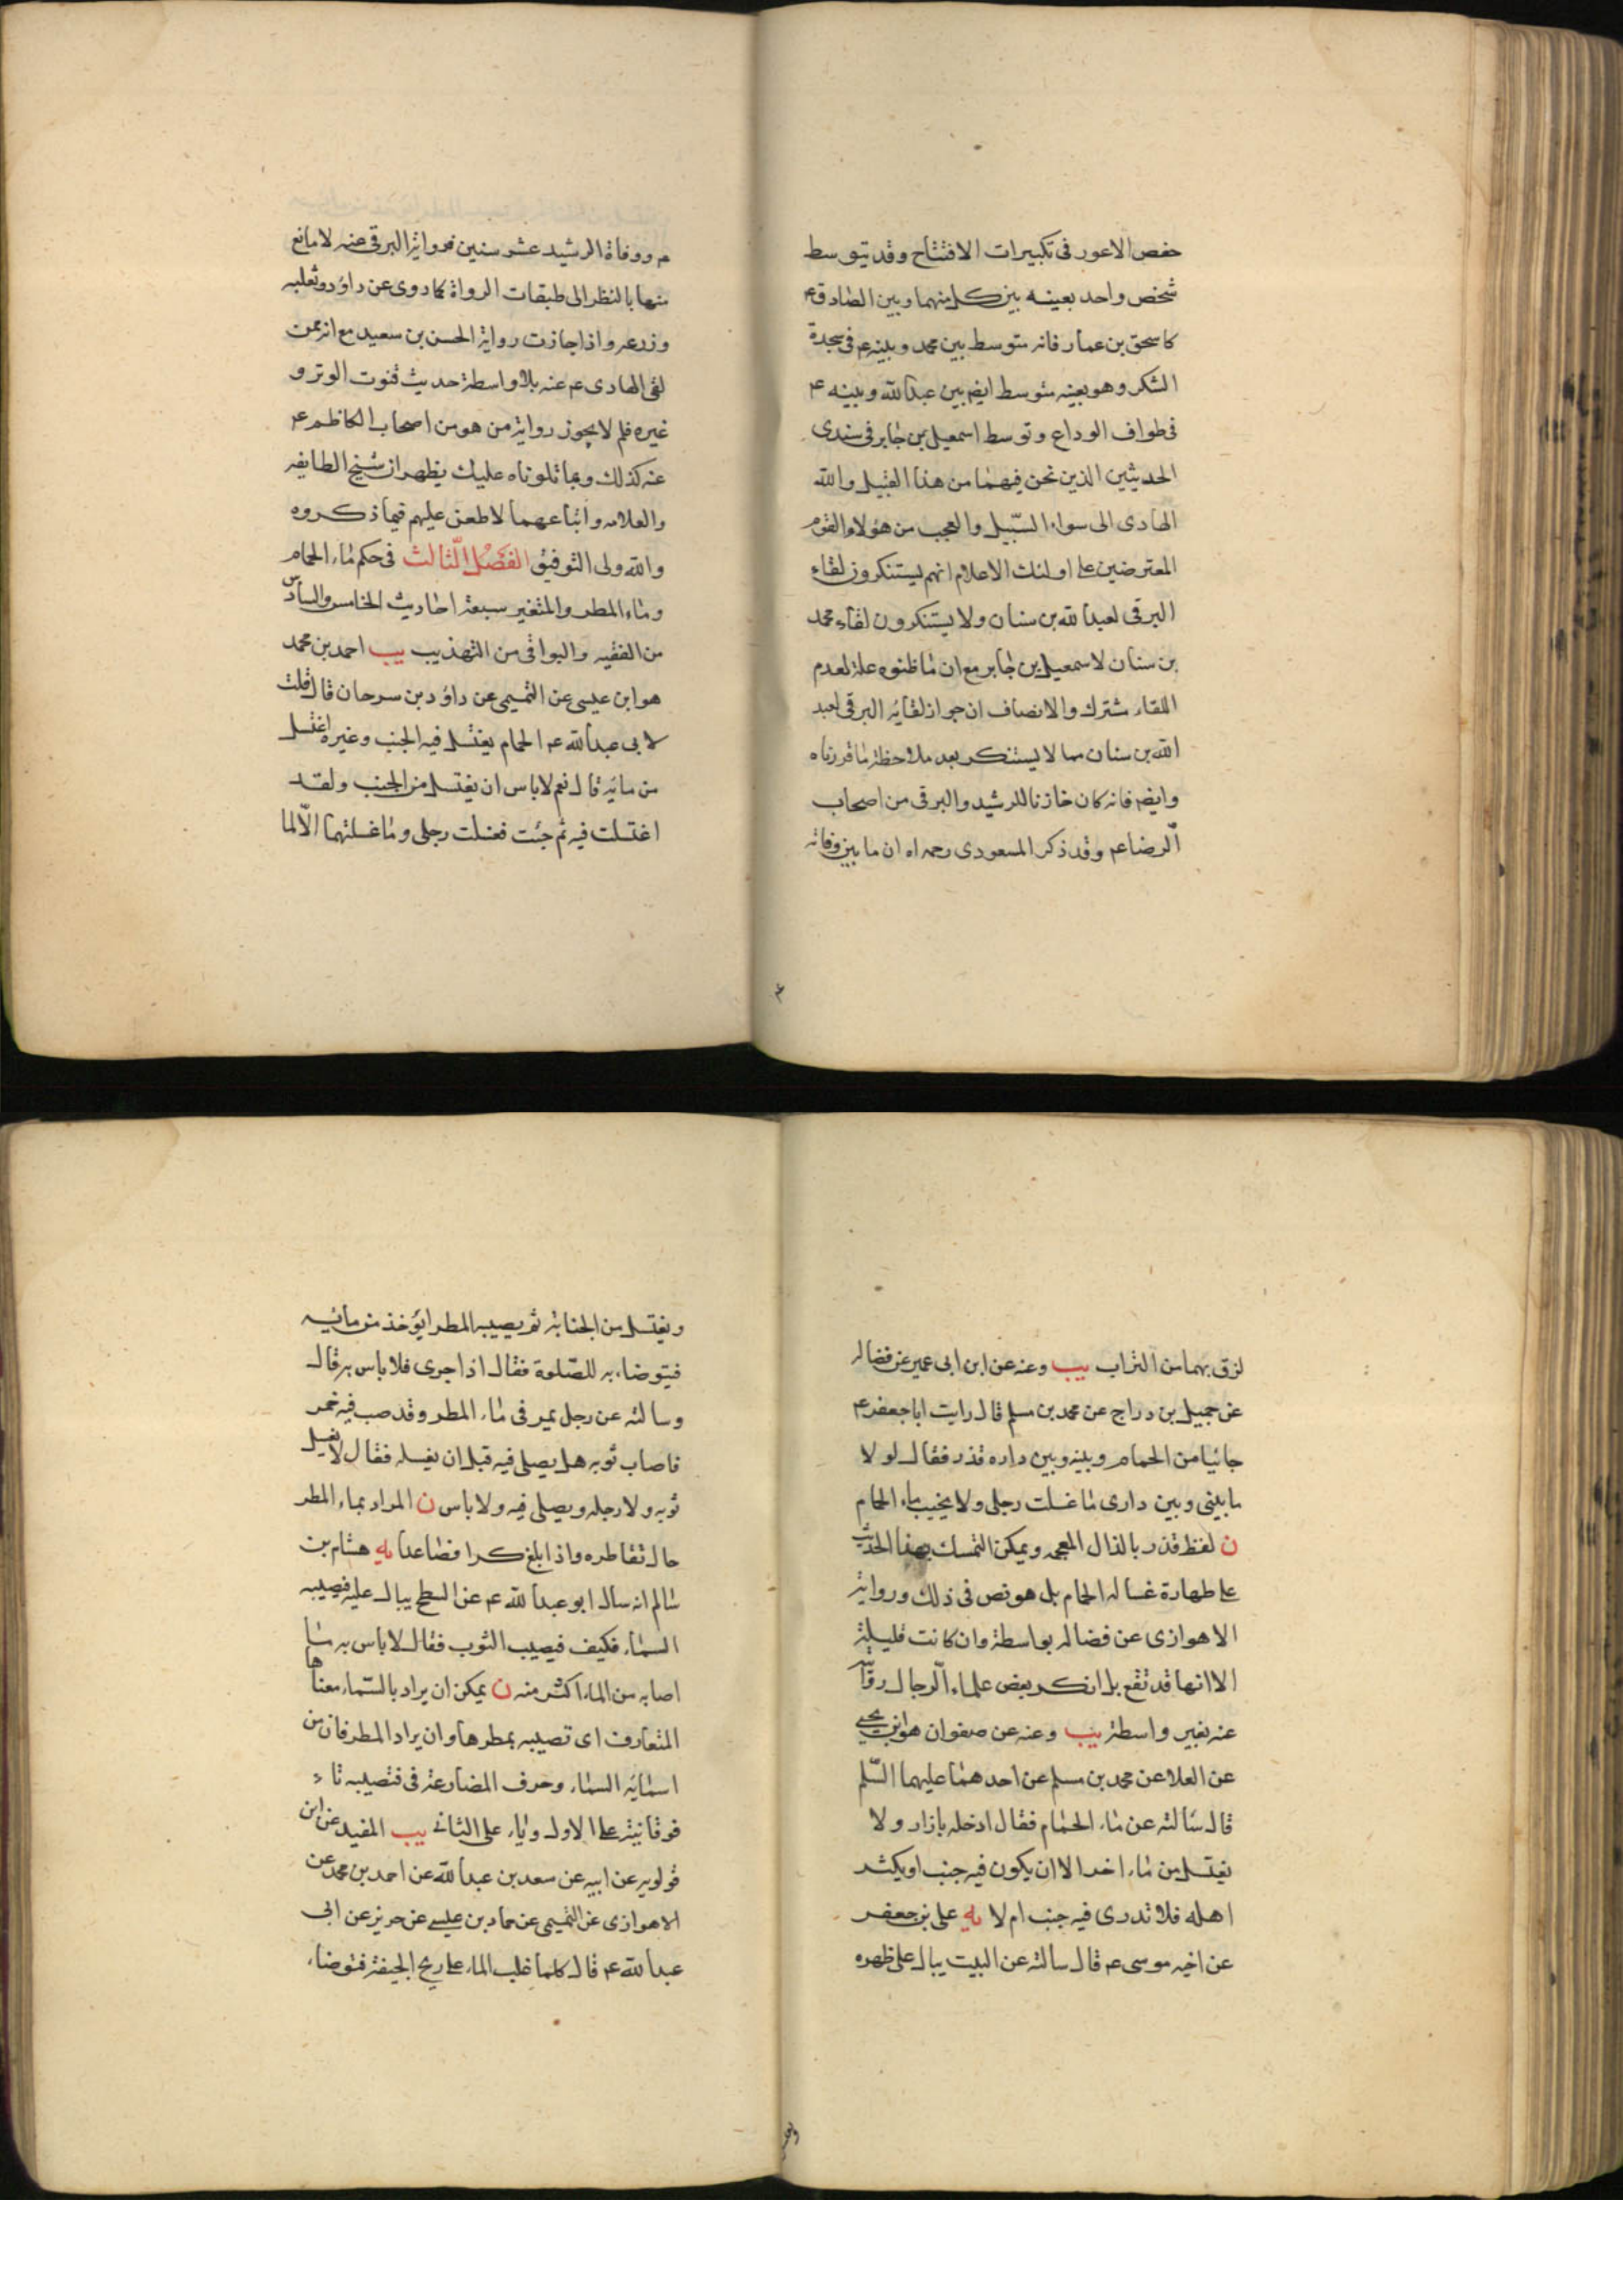 حفص الاعور فى تكبيرات الافتتاح وقد يتوسط
شخص واحد بعينه بين كل منهما وبين الصادق ع
كاسحق بن عمار فانه متوسط بين محمد وبينه ع فى سجدة
الشكر وهو بعينه متوسط ايضم بين عبدالله وبينه ع
فى طواف الوداع وتوسط اسمعيل بن جابر فى سندى
الحديثين الذين نحن فيهما من هذا القبيل والله
الهادى الى سواء السّبيل والعجب من هؤلاء القوم
المعترضين على اولئك الاعلام انهم يستنكرون لقاء
البرقى لعبدالله بن سنان ولا يستنكرون لقاء محمد
بن سنان لاسمعيل بن جابر مع ان ما ظنوه علة لعدم
اللقاء مشترك والانصاف ان جواز لقائه البرقى لعبد
الله بن سنان مما لا يستنكر بعد ملاحظة ما قررناه
وايضم فانه كان خازنا للرشيد والبرقى من اصحاب
الّرضا ع وقد ذكر المسعودى رحمه اه ان ما بين وفاته
م ووفاة الرشيد عشر سنين فرواية البرقى عنه لا مانع
منها بالنظر الى طبقات الرواة كما روى عن داؤد وثعلبه
وزرعه واذا جازت رواية الحسن بن سعيد مع انه ممن
لقى الهادى ع عنه بلا واسطة حديث قنوت الوتر و
غيره فلم لا يجوز رواية من هو من اصحاب الكاظم ع
عنه كذلك وبما تلوناه عليك يظهر ان شيخ الطايفه
والعلامه واتباعهما لا طعن عليهم فيما ذكروه
والله ولى التوفيق الفَصْل الثّالث فى حكم ماء الحمام
وماء المطر والمتغير سبعة احاديث الخامس والسادس
من الفقيه والبواقى من التهذيب يب احمد بن محمد
هو ابن عيسى عن التميمى عن داؤد بن سرحان قال قلت
لابى عبدالله ع الحمام يغتسل فيه الجنب وغيره اغتسل
من مائه قال نعم لا باس ان يغتسل منه الجنب ولقد
اغتسلت فيه ثم جئت فغسلت رجلى وما غسلتهما الّا لما
لزق بهما من التراب يب وعنه عن ابن ابى عمير عن فضاله
عن جميل بن دراج عن محمد بن مسلم قال رايت ابا جعفر ع
جائيا من الحمام وبينه وبين داره قذر فقال لو لا
ما بينى وبين دارى ما غسلت رجلى ولا يخيب ماء الحمام
ن لفظ قذر بالذال المعجمه ويمكن التمسك بهذا الحديث
على طهارة غساله الحمام بل هو نص فى ذلك ورواية
الاهوازى عن فضاله بواسطة وان كانت قليلة
الا انها قد تقع بل انكر بعض علماء الّرجال روايته
عنه بغير واسطة يب وعنه عن صفوان هو ابن يحيى
عن العلا عن محمد بن مسلم عن احدهما عليهما السّلم
قال سالته عن ماء الحمام فقال ادخله بازار ولا
تغتسل من ماء اخر الا ان يكون فيه جنب او يكثر
اهله فلا تدرى فيه جنب ام لا يه على بن جعفر
عن اخيه موسى ع قال سالته عن البيت يبال على ظهره
ويغتسل من الجنابة ثم يصيبه المطر ايؤخذ من مائه
فيتوضاء به للصّلوة فقال اذا جرى فلا باس به قال
وسالته عن رجل يمر فى ماء المطر وقد صب فيه خمر
فاصاب ثوبه هل يصلى فيه قبل ان يغسله فقال لا يغسل
ثوبه ولا رجله ويصلى فيه ولا باس ن المراد بماء المطر
حال تقاطره واذا بلغ كرا فصاعدا يه هشام بن
سالم انه سال ابو عبدالله ع عن السطح يبال عليه فيصيبه
السماء فكيف فيصيب الثوب فقال لا باس به ما
اصابه من الماء اكثر منه ن يمكن ان يراد بالسّماء معناها
المتعارف اى تصيبه بمطرها وان يراد المطر فان من
اسمائه السماء وحرف المضارعة فى فتصيبه تاء
فوقانية على الاول وياء على الثانى يب المفيد عن ابن
قولويه عن ابيه عن سعد بن عبدالله عن احمد بن محمد عن
الاهوازى عن التميمى عن حماد بن عيسى عن حريز عن ابى
عبدالله ع قال كلما غلب الماء على ريح الجيفة فتوضاء